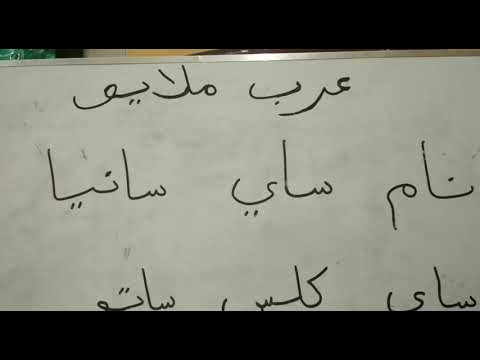 عرب ملايو
نام ساي سانيا
ساي كلس ساتو